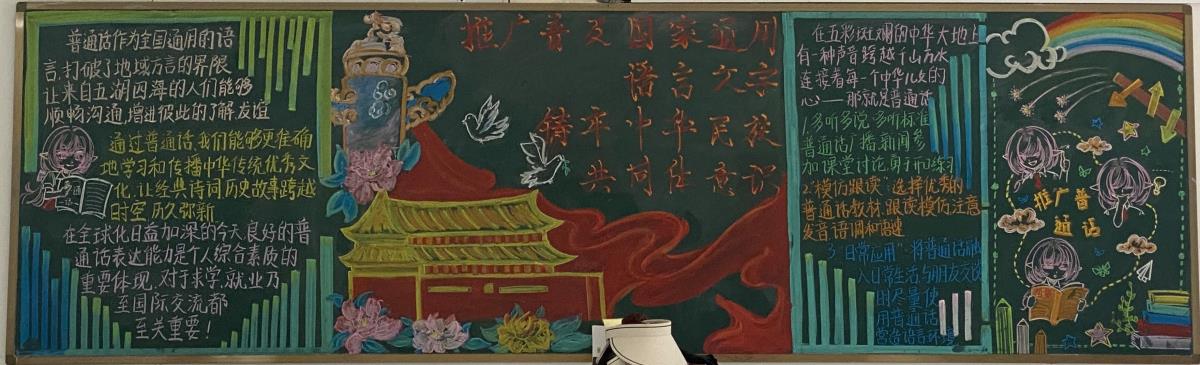 普通话作为全国通用的语
言,打破了地域方言的界限
让来自五湖四海的人们能够
顺畅沟通,增进彼此的了解友谊
通过普通话,我们能够更准确
地学习和传播中华传统优秀文
化,让经典诗词历史故事跨越
时空,历久弥新
在全球化日益加深的今天良好的普
通话表达能力是个人综合素质的
重要体现,对于求学,就业乃
至国际交流都
至关重要!
推广普及国家通用
语言文字
铸牢中华民族
共同体意识
在五彩斑斓的中华大地上
有一种声音跨越千山万水
连接着每一个中华儿女的
心——那就是普通话
1多听多说:多听标准
普通话/播新闻参
加课堂讨论,勇于开口练习
2"模仿跟读":选择优秀的
普通话教材,跟读模仿注意
发音语调和语速
3"日常应用":将普通话融
入日常生活,与朋友交谈
时尽量使
用普通话
营造语言环境
推广普
通话